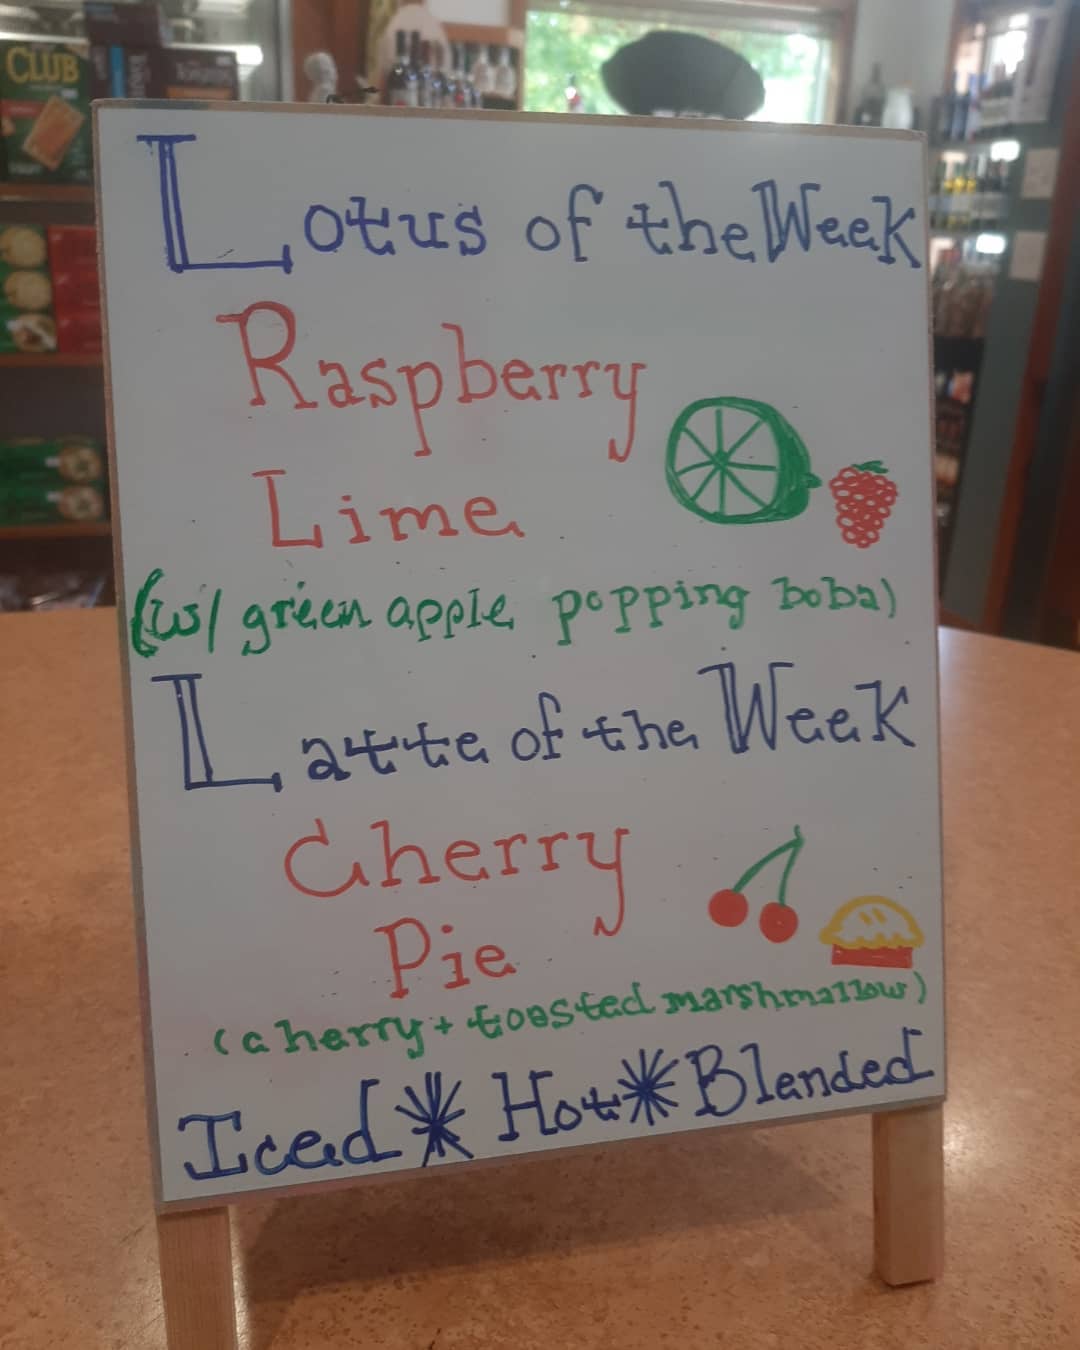 CLUB
Lotus of the Week
Raspberry
Lime
(w/ green apple popping boba)
Latte of the Week
Cherry
Pie
(cherry + toasted marshmallow)
Iced * Hot * Blended